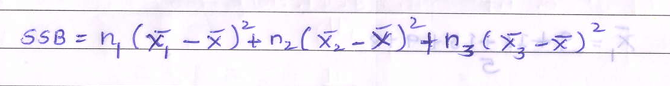 SSB = n₁(x̄₁ - x̄)² + n₂(x̄₂ - x̄)² + n₃(x̄₃ - x̄)²